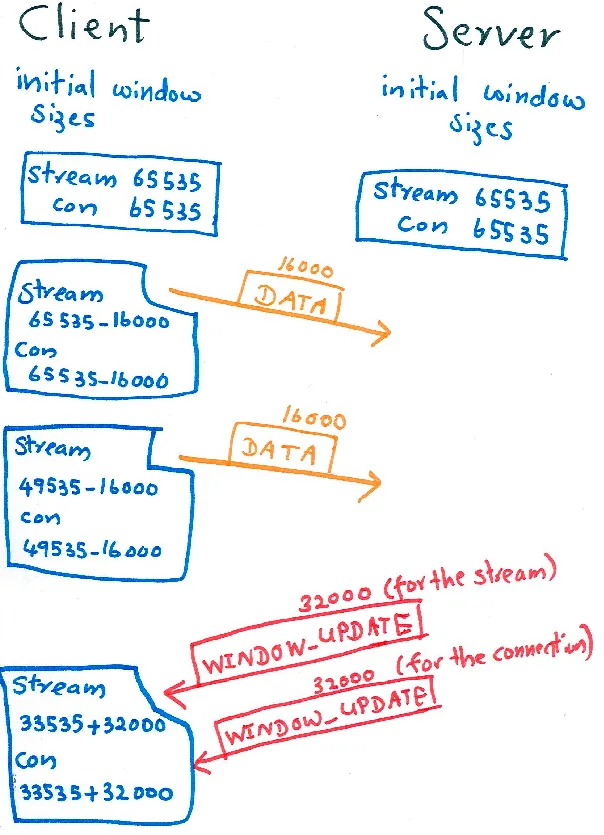 Client
Server
initial window
sizes
initial window
sizes
Stream 65535
con 65535
Stream 65535
Con 65535
Stream
65535-16000
Con
65535-16000
16000
DATA
Stream
49535-16000
con
49535-16000
16000
DATA
32000 (for the stream)
WINDOW_UPDATE
32000 (for the connection)
WINDOW_UPDATE
Stream
33535+32000
Con
33535+32000